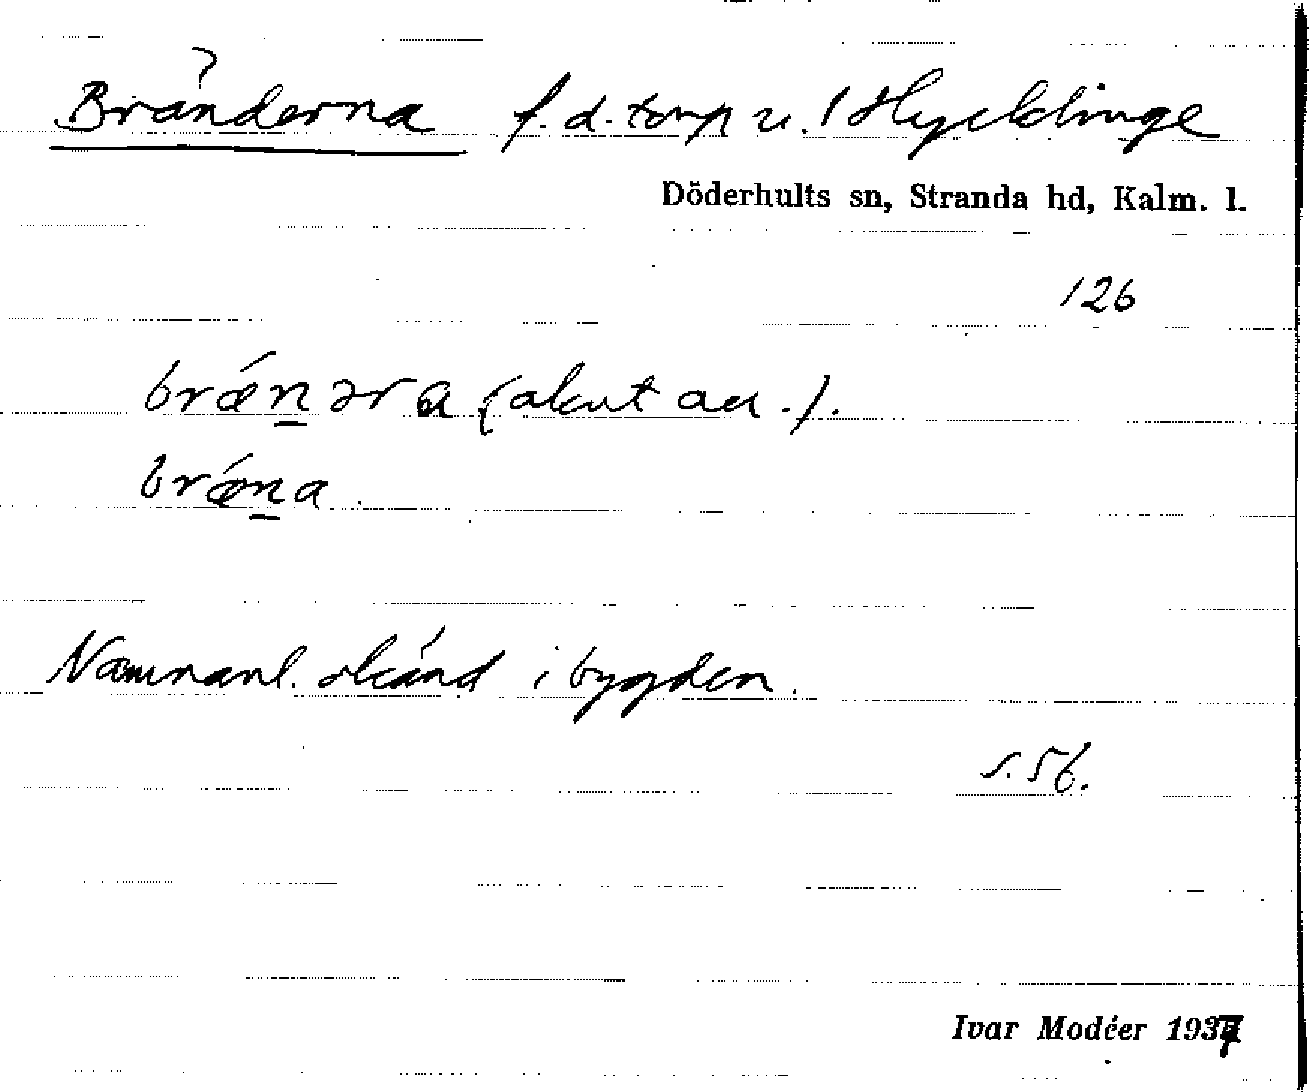 Bränderna f. d. torp u. 1 Hycklinge
Döderhults sn, Stranda hd, Kalm. l.
126
brǽn̲əra (akut acc.).
brǽn̲a.
Namnanl. okänd i bygden.
s. 56.
Ivar Modéer 1937